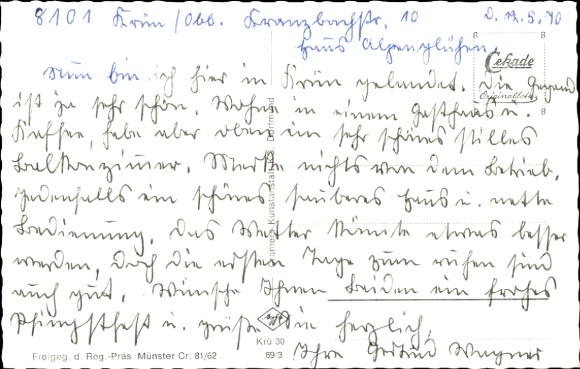 8101 Krün/Obb. Kranzbachstr. 10 D. 12.5.70
Haus Alpenglühen.
Cekade
Originalfoto
Nun bin ich hier in Krün gelandet. Die Gegend
ist ja sehr schön. Wohne in einem Gasthaus u.
Kaffee, habe aber oben ein sehr schönes stilles
Balkonzimmer. Merke nichts von dem Betrieb.
Jedenfalls ein schönes sauberes Haus u. nette
Bedienung. Das Wetter könnte etwas besser
werden, doch die ersten Tage zum ruhen sind
auch gut. Wünsche Ihnen beiden ein frohes
Pfingstfest u. grüße Sie herzlich,
Ihre Gertrud Wagner
Freigeg. d. Reg.-Präs. Münster Cr. 81/62
Krü 30
69/3